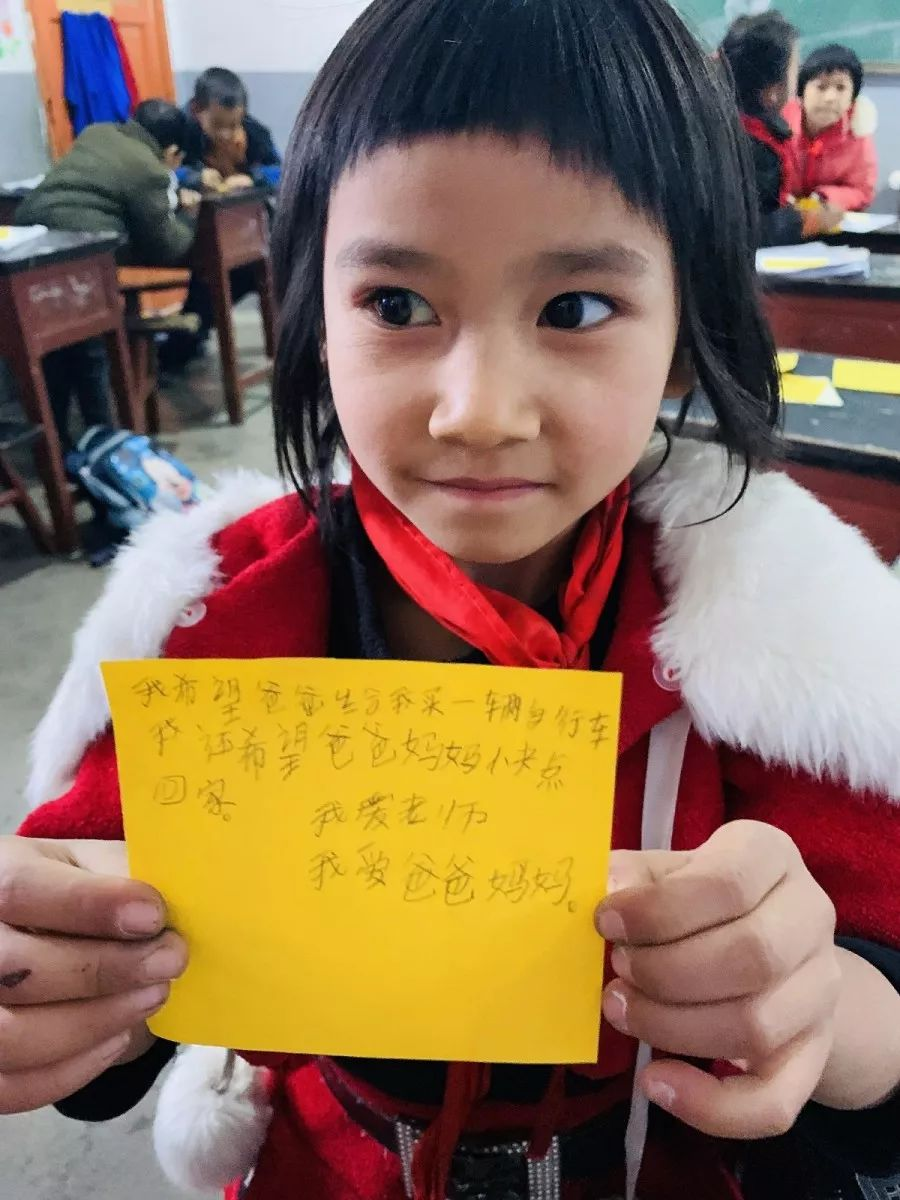 我希望爸爸给我买一辆自行车
我还希望爸爸妈妈快点
回家。
我爱老师
我爱爸爸妈妈。